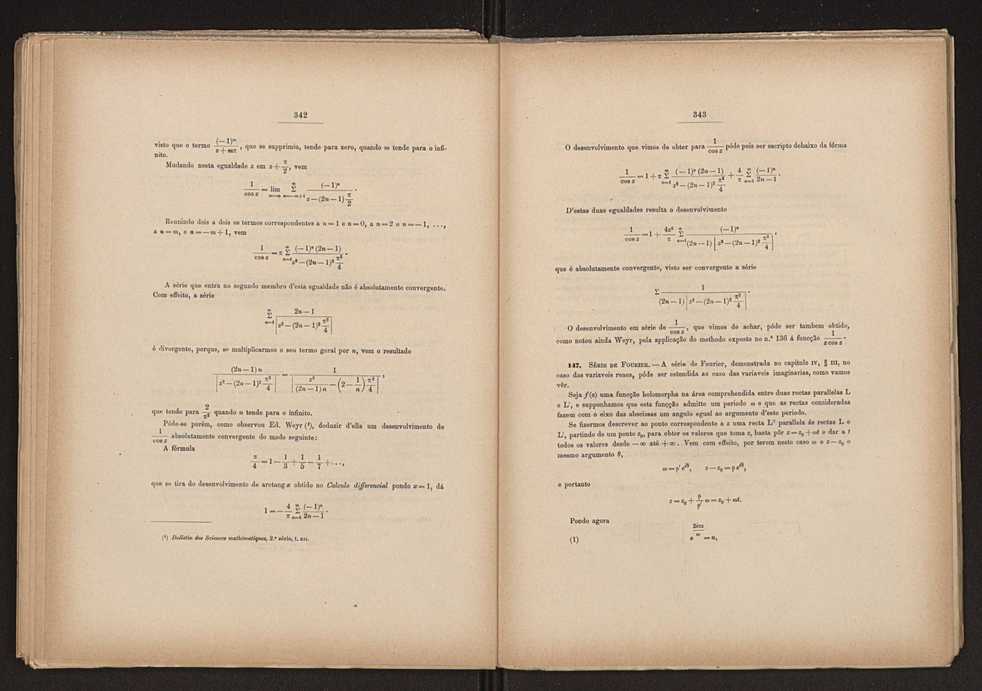 342
visto que o termo (—1)ⁿ / (z + nπ), que se supprimiu, tende para zero, quando se tende para o infi-
nito.
Mudando nesta egualdade z em z + π/2, vem
1/cos z = lim Σ (—1)ⁿ / (z — (2n — 1) π/2).
Reunindo dois a dois os termos correspondentes a n = 1 e n = 0, a n = 2 e n = — 1, ...,
a n = m, e n = — m + 1, vem
1/cos z = π Σ (—1)ⁿ (2n — 1) / (z² — (2n — 1)² π²/4).
A série que entra no segundo membro d'esta egualdade não é absolutamente convergente.
Com effeito, a série
Σ (2n — 1) / |z² — (2n — 1)² π²/4|
é divergente, porque, se multiplicarmos o seu termo geral por n, vem o resultado
(2n — 1) n / |z² — (2n — 1)² π²/4| = 1 / |z²/((2n — 1) n) — (2 — 1/n) π²/4|,
que tende para 2/π² quando n tende para o infinito.
Póde-se porém, como observou Ed. Weyr (¹), deduzir d'ella um desenvolvimento de
1/cos z absolutamente convergente do modo seguinte:
A fórmula
π/4 = 1 — 1/3 + 1/5 — 1/7 + ...,
que se tira do desenvolvimento de arctang x obtido no Calculo differencial pondo x = 1, dá
1 = — 4/π Σ (—1)ⁿ / (2n — 1).
(¹) Bulletin des Sciences mathématiques, 2.ª série, t. XII.
343
O desenvolvimento que vimos de obter para 1/cos z póde pois ser escripto debaixo da fórma
1/cos z = 1 + π Σ (—1)ⁿ (2n — 1) / (z² — (2n — 1)² π²/4) + 4/π Σ (—1)ⁿ / (2n — 1).
D'estas duas egualdades resulta o desenvolvimento
1/cos z = 1 + 4z²/π Σ (—1)ⁿ / ((2n — 1) [z² — (2n — 1)² π²/4]),
que é absolutamente convergente, visto ser convergente a série
Σ 1 / ((2n — 1) |z² — (2n — 1)² π²/4|).
O desenvolvimento em série de 1/cos z, que vimos de achar, póde ser tambem obtido,
como notou ainda Weyr, pela applicação do methodo exposto no n.º 136 á funcção 1/(z cos z).
147. SÉRIE DE FOURIER. — A série de Fourier, demonstrada no capitulo IV, § III, no
caso das variaveis reaes, póde ser estendida ao caso das variaveis imaginarias, como vamos
vêr.
Seja f(z) uma funcção holomorpha na área comprehendida entre duas rectas parallelas L
e L', e supponhamos que esta funcção admitte um periodo ω e que as rectas consideradas
fazem com o eixo das abscissas um angulo egual ao argumento d'este periodo.
Se fizermos descrever ao ponto correspondente a z uma recta L'' parallela ás rectas L e
L', partindo de um ponto z₀, para obter os valores que toma z, basta pôr z = z₀ + ωt e dar a t
todos os valores desde — ∞ até + ∞. Vem com effeito, por terem neste caso ω e z — z₀ o
mesmo argumento θ,
ω = ρ' e^{iθ}, z — z₀ = ρ e^{iθ},
e portanto
z = z₀ + ρ/ρ' ω = z₀ + ωt.
Pondo agora
(1) e^{2iπz/ω} = u,